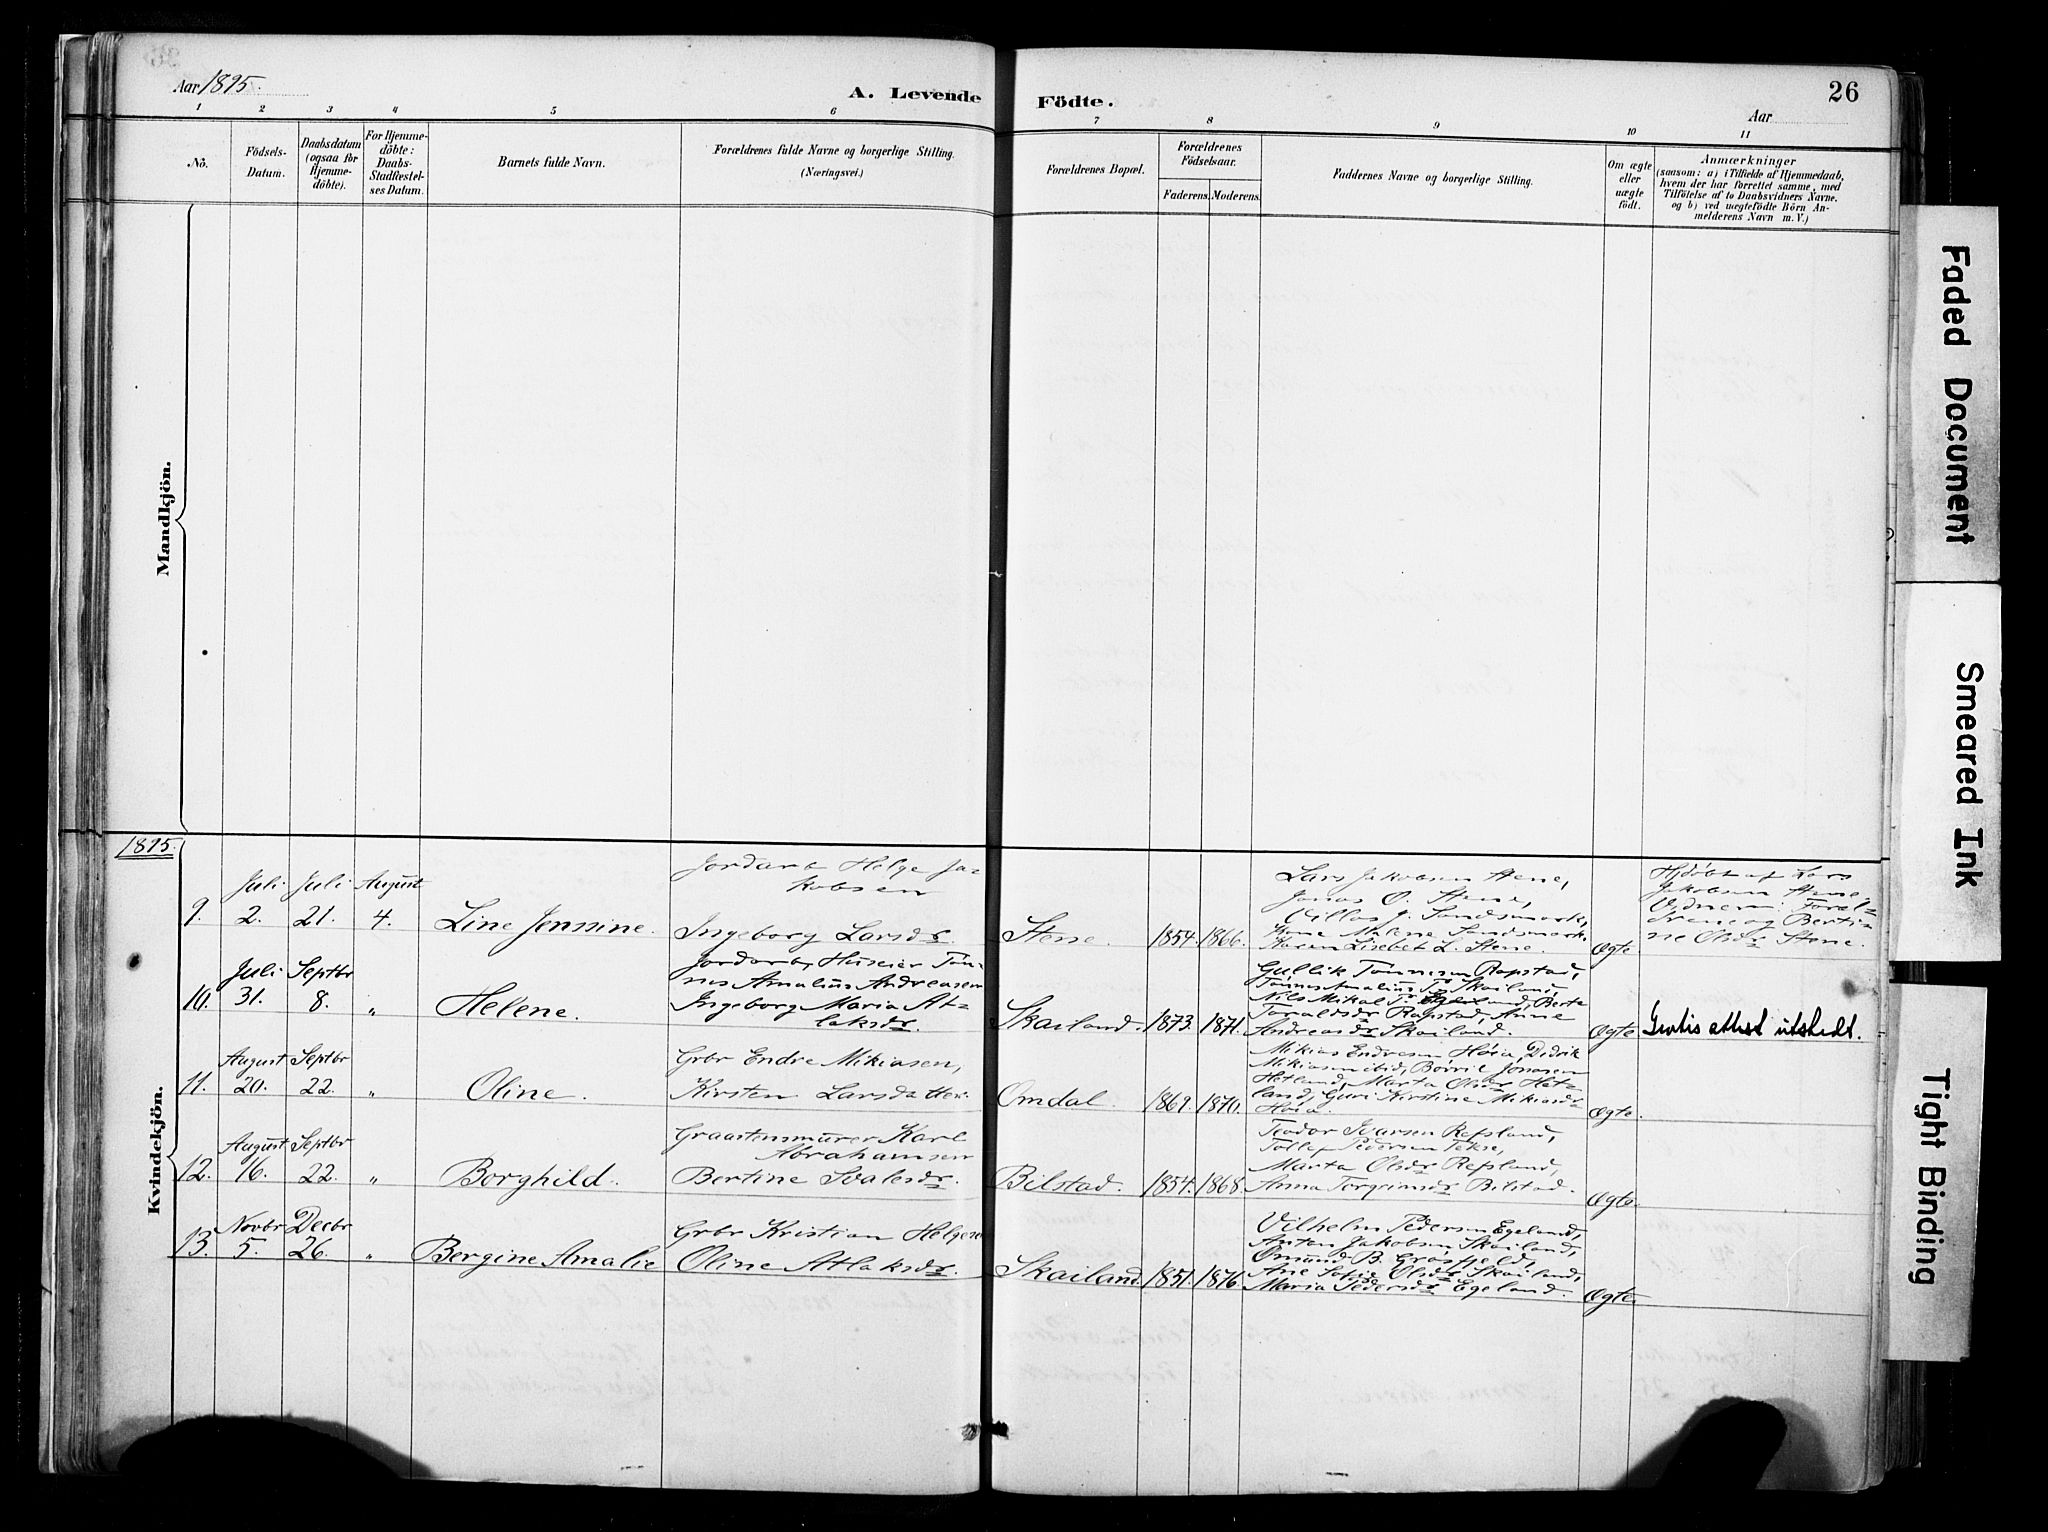 Aar 1895.
A. Levende Födte.
Aar
26
1 2 3 4 5 6 7 8 9 10 11
No.
Födsels-Datum.
Daabsdatum (ogsaa for Hjemme-döbte).
For Hjemme-döbte: Daabs-Stadfæstel-ses Datum.
Barnets fulde Navn.
Forældrenes fulde Navne og borgerlige Stilling. (Næringsvei.)
Forældrenes Bopæl.
Forældrenes Födselsaar.
Faderens. Moderens.
Faddernes Navne og borgerlige Stilling.
Om ægte eller uægte födt.
Anmærkninger
(saasom: a) i Tilfælde af Hjemmedaab,
hvem der har forrettet samme, med
Tilföielse af to Daabsvidners Navne.
og b) ved uægtefödte Börn An-
melderens Navn m. V.)
Mandkjön.
1895.
Kvindekjön.
9. Juli 2. Juli 21. August 4. Line Jenssine.
Helge Ja-
kobsen
Ingeborg Larsdr.
Stene. 1854. 1866.
Lars Jakobsen Stene,
Jonas O. Stene,
Villas J. Sandsmark,
Kone Malene Sandsmark.
Karen Lisebet L. Stene.
Ægte.
Hjdöbt af Lars
Jakobsen Stene.
Vidner: Foræl-
drene og Berti-
ne Olsdr Stene.
10. Juli 31. Septbr 8. " Helene.
Huseier Tön-
nes Amalius Andreasen
Ingeborg Maria At-
laksdr.
Skailand. 1873. 1871.
Gullik Tönnesen Rapstad,
Tönnes Amalius T. Skailand,
Nils Mikal Berte
Toraldsdr Rapstad, Anne
Andreasdr Skailand.
Ægte. Gratis attest utstedt.
11. August 20. Septbr 22. " Oline.
Grbr Endre Mikiasen,
Kirsten Larsd
Omdal. 1869. 1870.
Mikias Endresen Höia, Didrik
Mikiasen ibid, Börril Jonasen
Hetland, Marta Olsdr Het-
land, Guri Kirstine Mikiasdr
Höia.
Ægte.
12. August 16. Septbr 22. " Borghild.
Graastensmurer Karl
Abrahamsen
Bertine Svalesdr.
Bilstad. 1854. 1868.
Teodor Ivarsen Refsland,
Tollef Pedersen Tekse,
Marta Olsdr Refsland,
Anna Torgrimsdr Bilstad.
Ægte.
13. Novbr 5. Decbr 26. " Bergine Amalie
Grbr Kristian Helgesen
Oline Atlaksdr.
Skailand. 1851. 1876.
Vilhelm Pedersen Egeland,
Anton Jakobsen Skailand,
Omund B. Grösfjeld,
Ane Sofie Olsdr Skailand,
Maria Pedersdr Egeland.
Ægte.
Faded Document
Smeared Ink
Tight Binding